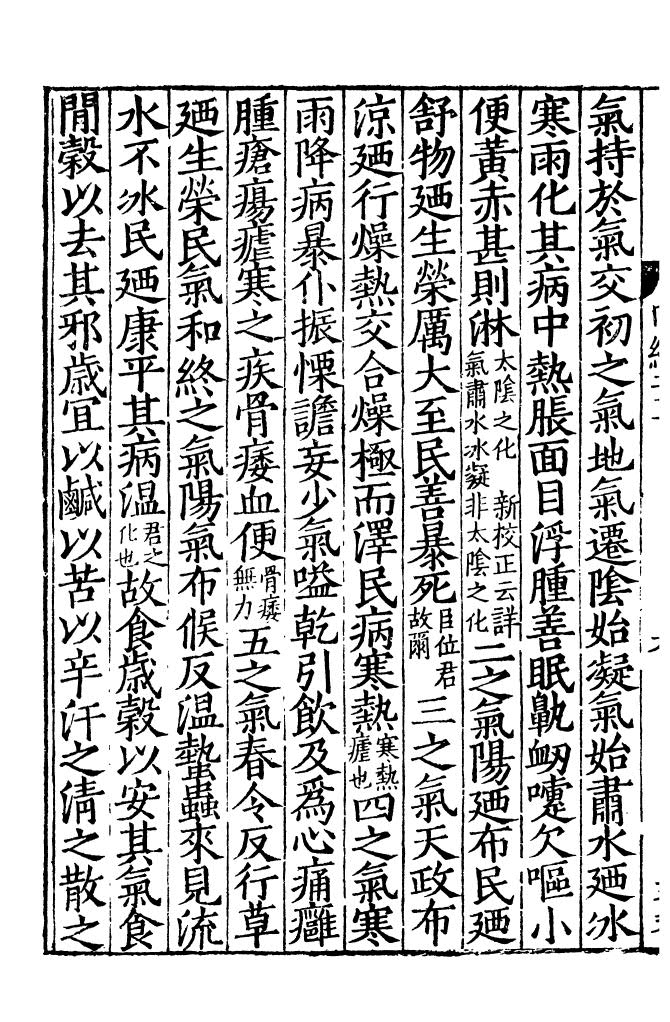 氣持於氣交初之氣地氣遷陰始凝氣始肅水廼冰
寒雨化其病中熱脹面目浮腫善眠鼽衂嚏欠嘔小
便黃赤甚則淋太陰之化　新校正云詳氣肅水冰凝非太陰之化二之氣陽廼布民廼
舒物廼生榮厲大至民善暴死臣位君故爾三之氣天政布
涼廼行燥熱交合燥極而澤民病寒熱寒熱瘧也四之氣寒
雨降病暴仆振慄譫妄少氣嗌乾引飲及爲心痛癰
腫瘡瘍瘧寒之疾骨痿血便骨痿無力五之氣春令反行草
廼生榮民氣和終之氣陽氣布候反温蟄蟲來見流
水不冰民廼康平其病温君之化也故食歳穀以安其氣食
閒穀以去其邪歳宜以鹹以苦以辛汗之清之散之